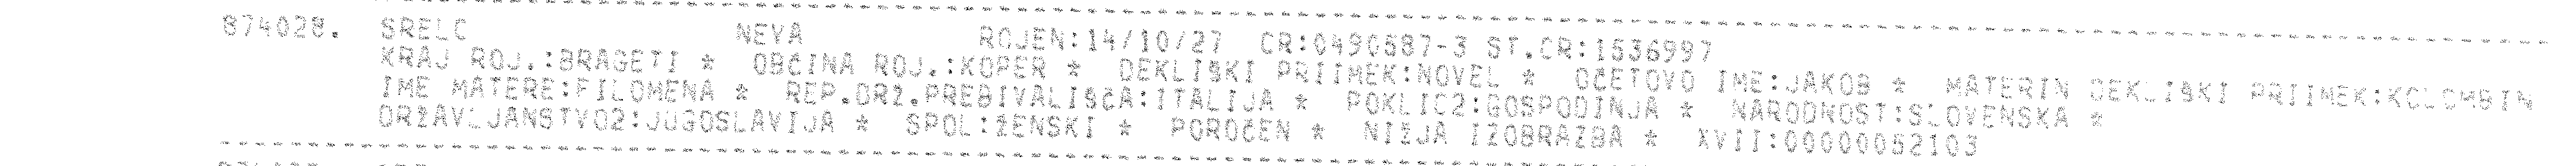 874028. SRELC NEVA ROJEN:14/10/27 CR:0490587-3 ST.CR:1536997
KRAJ ROJ.:BRAGETI * OBČINA ROJ.:KOPER * DEKLIŠKI PRIIMEK:NOVEL * OČETOVO IME:JAKOB * MATERIN DEKLIŠKI PRIIMEK:KOLOMBIN
IME MATERE:FILOMENA * REP.DRŽ.PREBIVALIŠČA:ITALIJA * POKLIC2:GOSPODINJA * NARODNOST:SLOVENSKA *
DRŽAVLJANSTVO2:JUGOSLAVIJA * SPOL:ŽENSKI * POROČEN * NIŽJA IZOBRAZBA * XVII:00000052103